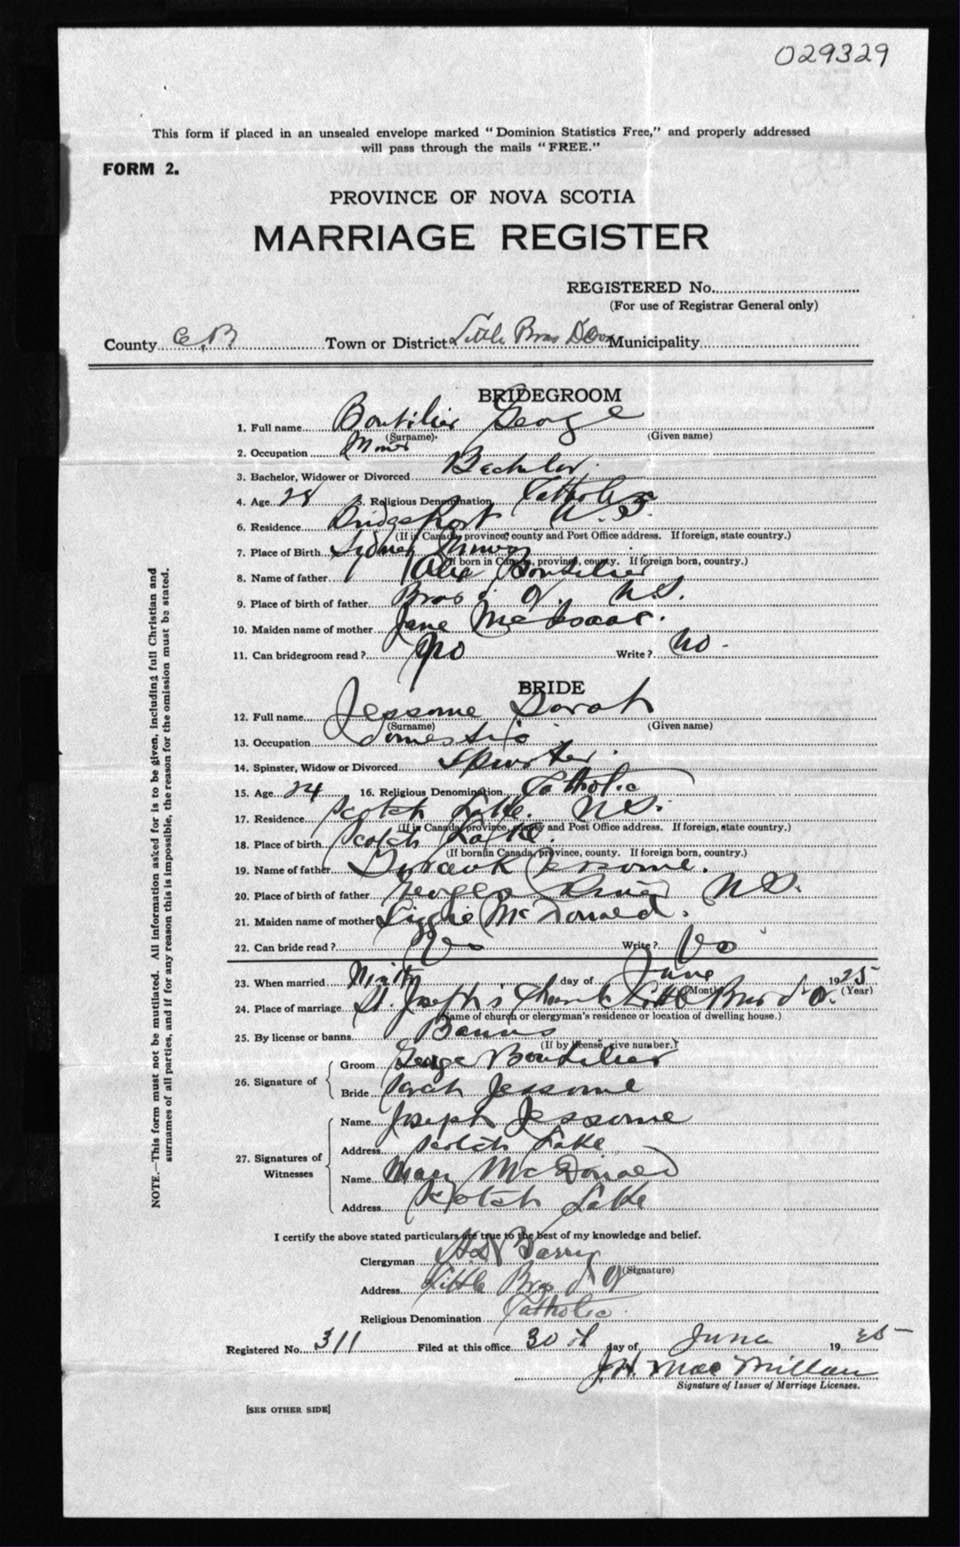 029329
This form if placed in an unsealed envelope marked "Dominion Statistics Free," and properly addressed
will pass through the mails "FREE."
FORM 2.
PROVINCE OF NOVA SCOTIA
MARRIAGE REGISTER
REGISTERED No.
(For use of Registrar General only)
County C.B Town or District Little Bras D'Or Municipality
BRIDEGROOM
1. Full name Boutilier George
(Surname) (Given name)
2. Occupation Miner
3. Bachelor, Widower or Divorced Bachelor
4. Age 28 5. Religious Denomination Catholic
6. Residence Bridgeport N.S.
(If in Canada, province, county and Post Office address. If foreign, state country.)
7. Place of Birth Sydney Mines
(If born in Canada, province, county. If foreign born, country.)
8. Name of father Alex Boutilier
9. Place of birth of father Bras d'Or N.S.
10. Maiden name of mother Jane McIsaac.
11. Can bridegroom read? No Write? No.
BRIDE
12. Full name Jessome Sarah
(Surname) (Given name)
13. Occupation Domestic
14. Spinster, Widow or Divorced Spinster
15. Age 24 16. Religious Denomination Catholic
17. Residence Scotch Lake. N.S.
(If in Canada, province, county and Post Office address. If foreign, state country.)
18. Place of birth Scotch Lake
(If born in Canada, province, county. If foreign born, country.)
19. Name of father Jessome.
20. Place of birth of father Georges River N.S.
21. Maiden name of mother Lizzie McDonald.
22. Can bride read? Write?
23. When married Ninth day of June 1925
(Month) (Year)
24. Place of marriage St. Joseph's Church Little Bras d'Or.
(Name of church or clergyman's residence or location of dwelling house.)
25. By license or banns Banns
(If by license, give number.)
26. Signature of Groom George Boutilier
Bride Sarah Jessome
27. Signatures of Witnesses Name Joseph Jessome
Address Scotch Lake
Name Mary McDonald
Address Scotch Lake
I certify the above stated particulars are true to the best of my knowledge and belief.
Clergyman Barry
(Signature)
Address Little Bras d'Or
Religious Denomination Catholic
Registered No. 311 Filed at this office 30th day of June 1925
J.H. MacMillan
Signature of Issuer of Marriage Licenses.
[SEE OTHER SIDE]
NOTE.—This form must not be mutilated. All information asked for is to be given, including full Christian and
surnames of all parties, and if for any reason this is impossible, the reason for the omission must be stated.